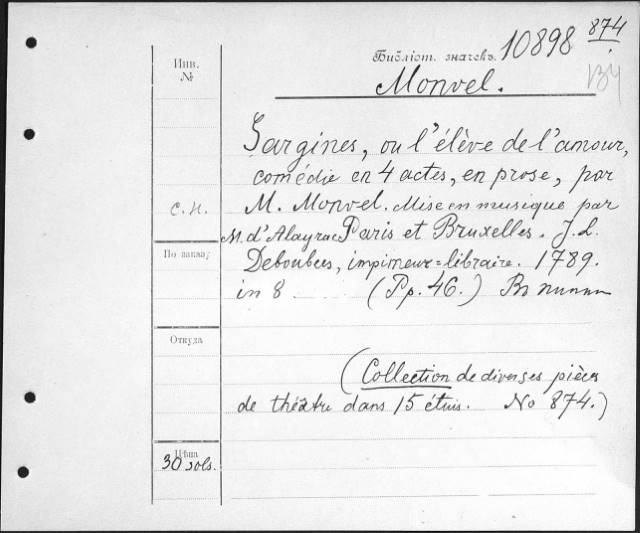 874
Библіот. значекъ. 10898
134
Инв.
№
Monvel.
Sargines, ou l'élève de l'amour,
comédie en 4 actes, en prose, par
с. н. M. Monvel. Mise en musique par
M. d'Alayrac Paris et Bruxelles. J. L.
По заказу Deboubers, imprimeur=libraire. 1789.
in 8 (Pp. 46.) Въ
Откуда
(Collection de diverses pièces
de théâtre dans 15 étuis. No 874.)
Цѣна
30 sols.